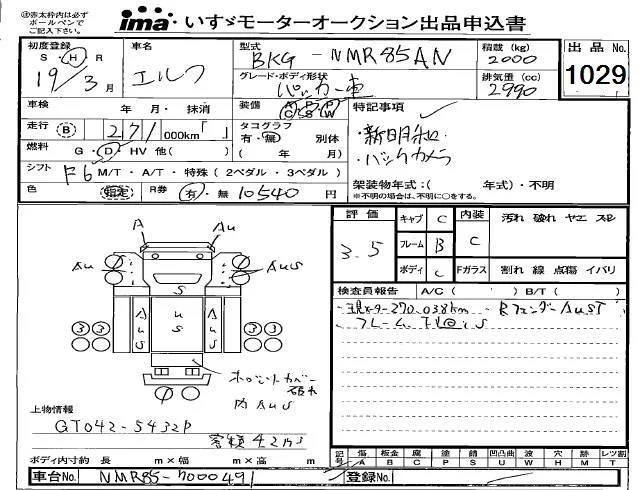 ※赤太枠内は必ず
ボールペンで
ご記入下さい。
ima いすゞモーターオークション出品申込書
初度登録 車名 型式 積載(kg) 出品 No.
S・H・R BKG-NMR85AN 2000 1029
19/3月 エルフ グレード・ボディ形状 排気量(cc)
パッカー車 2990
車検 年 月・抹消 装備 AC PS PW 特記事項
走行 B 271 000km「 」 タコグラフ 有・無 別体 ・新明和
燃料 G・D・HV 他( ) ( 年 月) ・バックカメラ
シフト F6 M/T・A/T・特殊(2ペダル・3ペダル) 架装物年式:( 年式)・不明
色 指定 R券 有・無 10540円 ※不明の場合は、不明に○をする。
評価 キャブ C 内装 汚れ 破れ ヤニ スレ
3.5 フレーム B C
ボディ C Fガラス 割れ 線 点傷 イバリ
A AU
AU AUS
S
AUS US AUS
③③ ③③
検査員報告 A/C( ) B/T( )
現メーター270,038km RフェンダーAUST
フレーム下回りS
破れ
内AUS
上物情報
GT042-5432P
容積4.2m3
ボディ内寸約 長 m×幅 m×高 m
記号 傷 A 板金 B 腐 C 塗 P 錆 S 凹凸凹 U 波 W 穴 H 跡 M レツ割 T
車台No. NMR85-7000491 登録No.